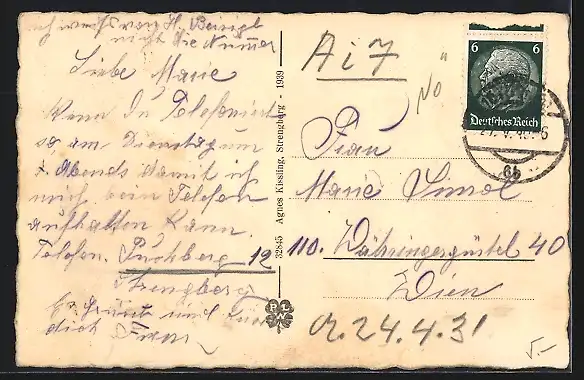 ich weiß von H. Beisigl
nicht die Nummer
Liebe Marie
Wenn Du Telefonierst
so am Dienstag um
Abends damit ich
mich beim Telefon
aufhalten kann
Telefon. Puchberg 12
Strengberg
Es grüßt und
dich
32845 Agnes Kissling, Strengberg - 1939
Ai7
No
6 6
Deutsches Reich
Frau
Marie Simol
110. Währingergürtel 40
Wien
24.4.31
5.-